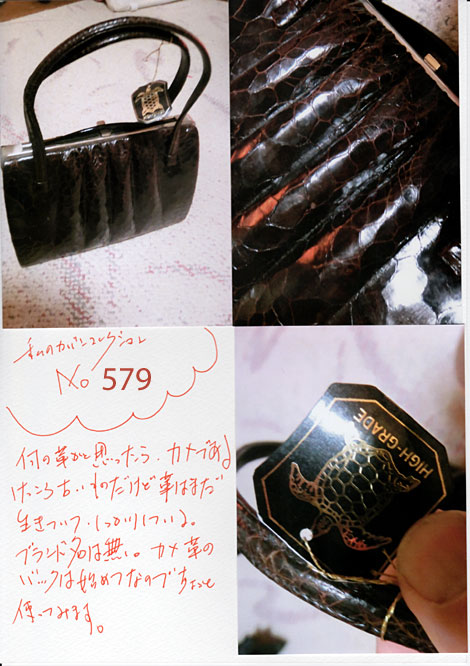 私のカバンコレクション
No 579
何の革かと思ったら、カメであ
けっこう古いものだけど革はまだ
生きていて、しっかりしている。
ブランド名は無し。カメ革の
バックは始めてなのでちょっと
使ってみます。
HIGH-GRADE